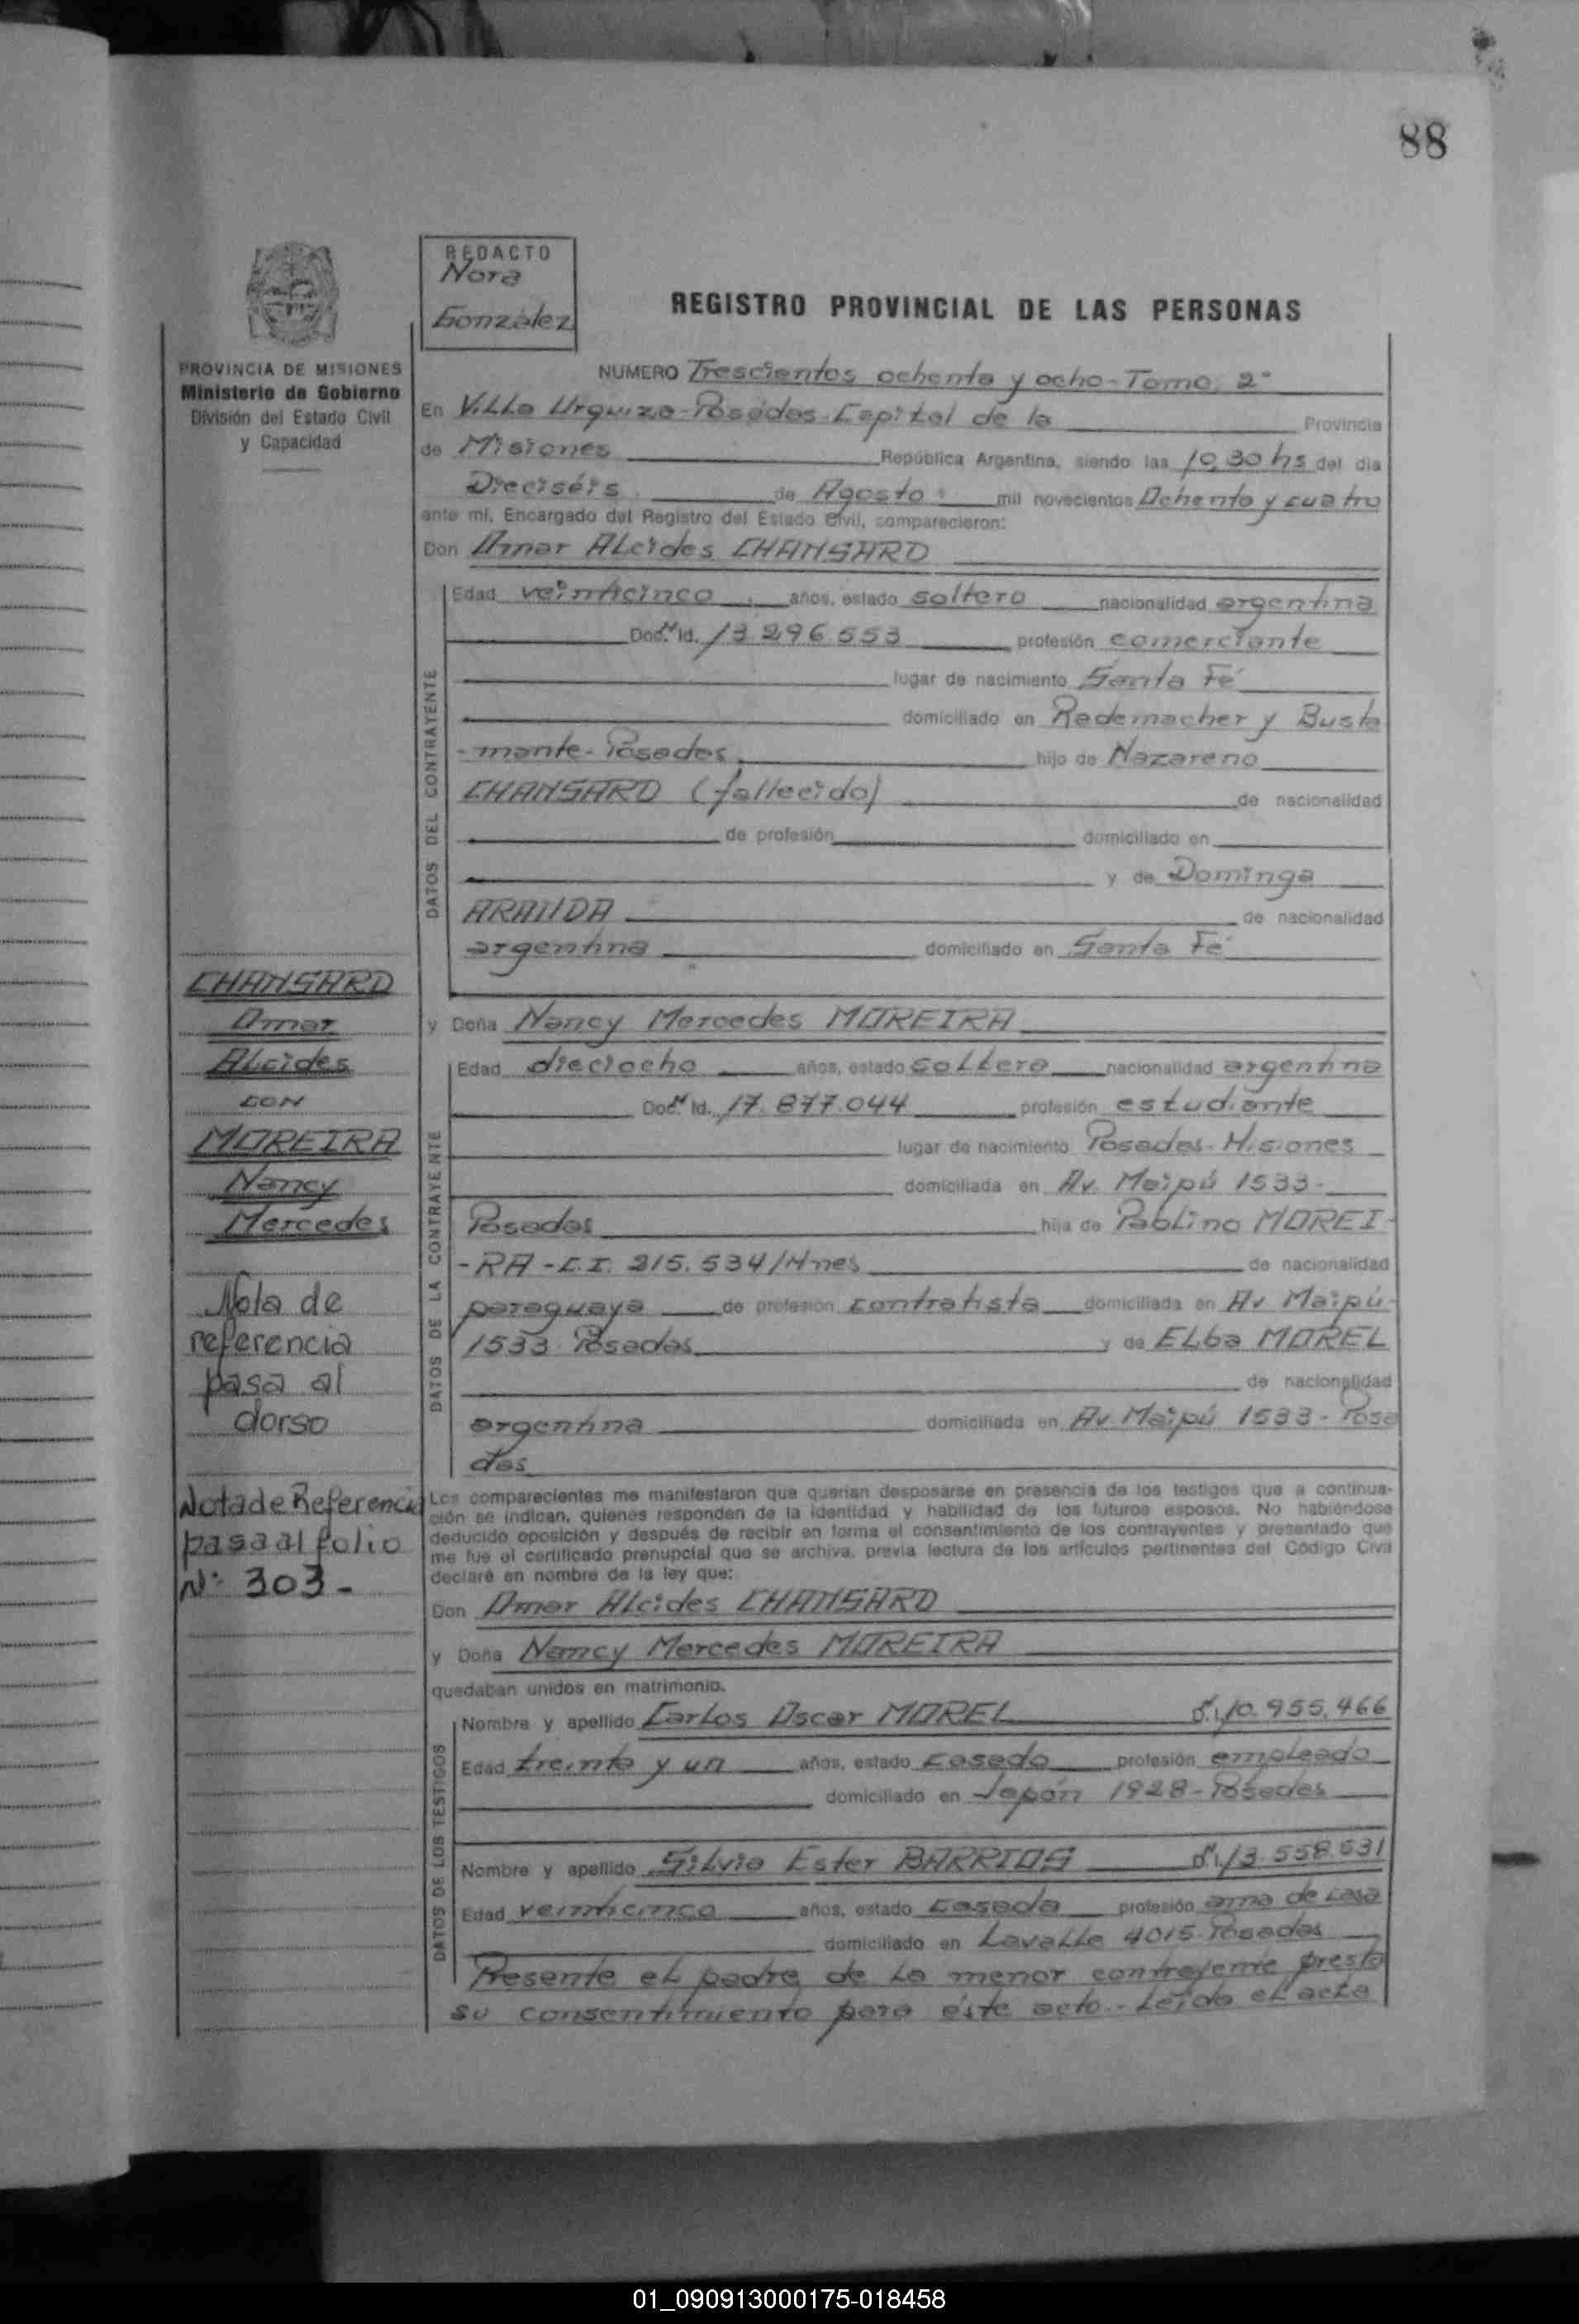 88
REDACTO
Nora
González
REGISTRO PROVINCIAL DE LAS PERSONAS
PROVINCIA DE MISIONES
Ministerio de Gobierno
División del Estado Civil
y Capacidad
NUMERO Trescientos ochenta y ocho - Tomo: 2°
En Villa Urquiza - Posadas - Capital de la Provincia
de Misiones República Argentina, siendo las 10,30 hs del dia
Dieciséis de Agosto mil novecientos Ochenta y cuatro
ante mí, Encargado del Registro del Estado Civil, comparecieron:
Don Omar Alcides CHANSARD
DATOS DEL CONTRAYENTE
Edad veinticinco años, estado soltero nacionalidad argentina
Doc. Id. 13.296.553 profesión comerciante
lugar de nacimiento Santa Fé
domiciliado en Rademacher y Busta
-mante - Posadas hijo de Nazareno
CHANSARD (fallecido) de nacionalidad
de profesión domiciliado en
y de Dominga
ARANDA de nacionalidad
argentina domiciliado en Santa Fé
CHANSARD
Omar
Alcides
CON
MOREIRA
Nancy
Mercedes
Nota de
referencia
pasa al
dorso
Nota de Referencia
pasa al folio
N° 303-
y Doña Nancy Mercedes MOREIRA
DATOS DE LA CONTRAYENTE
Edad dieciocho años, estado soltera nacionalidad argentina
Doc. Id. 17.877.044 profesión estudiante
lugar de nacimiento Posadas - Misiones
domiciliada en Av. Maipú 1533 -
Posadas hija de Pablino MOREI-
-RA - C.I. 215.534/Mnes de nacionalidad
paraguaya de profesión contratista domiciliada en Av Maipú-
1533 Posadas y de Elba MOREL
de nacionalidad
argentina domiciliada en Av. Maipú 1533 - Posa
das
Los comparecientes me manifestaron que querían desposarse en presencia de los testigos que a continua-
ción se indican, quienes responden de la identidad y habilidad de los futuros esposos. No habiéndose
deducido oposición y después de recibir en forma el consentimiento de los contrayentes y presentado que
me fue el certificado prenupcial que se archiva, previa lectura de los artículos pertinentes del Código Civil
declaré en nombre de la ley que:
Don Omar Alcides CHANSARD
y Doña Nancy Mercedes MOREIRA
quedaban unidos en matrimonio.
DATOS DE LOS TESTIGOS
Nombre y apellido Carlos Oscar MOREL 10.955.466
Edad treinta y un años, estado casado profesión empleado
domiciliado en Japón 1928 - Posadas
Nombre y apellido Silvia Ester BARRIOS 13.558.631
Edad veinticinco años, estado casada profesión ama de casa
domiciliado en Lavalle 4015 - Posadas
Presente el padre de la menor contrayente presta
su consentimiento para éste acto.- Leída el acta
01_090913000175-018458